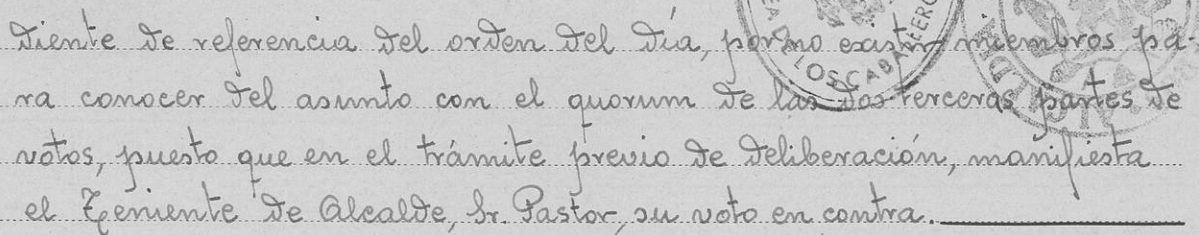 diente de referencia del orden del día, por no existir miembros pa-
ra conocer del asunto con el quorum de las dos terceras partes de
votos, puesto que en el trámite previo de deliberación, manifiesta
el Teniente de Alcalde, Sr. Pastor, su voto en contra.
LOS CABALLERO
ALCALD